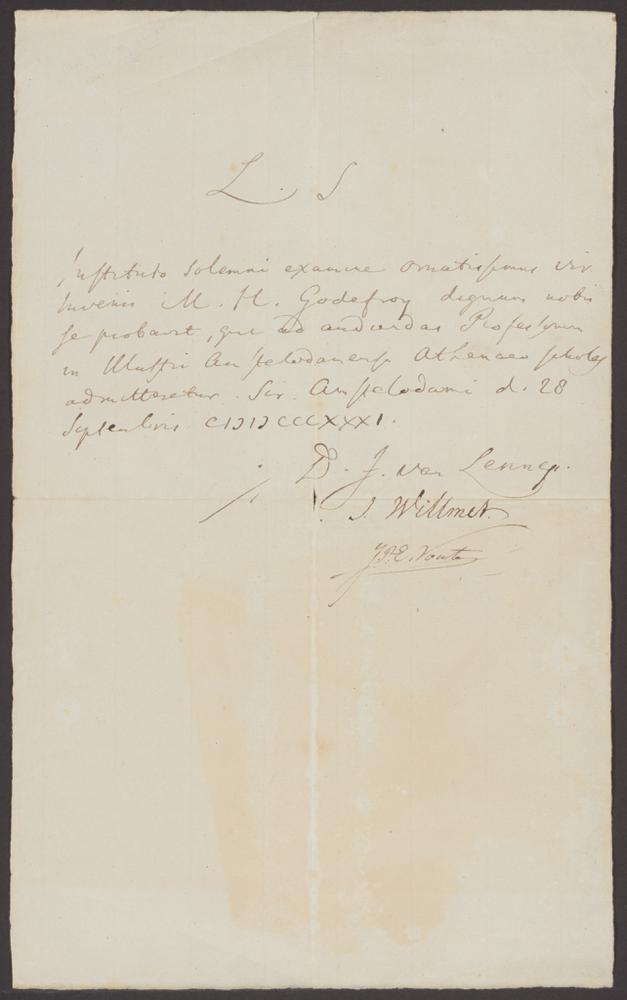 L. S
Instituto solemni examine ornatissimus vir
Juvenis M. H. Godefroy dignum nobis
se probavit, qui ad audiendas Professorum
in Illustri Amstelodanensi Athenaeo scholas
admitteretur. Scr. Amstelodami d. 28
Septembris CIↃIↃCCCXXXI.
D. J. van Lennep.
J. Willmet.